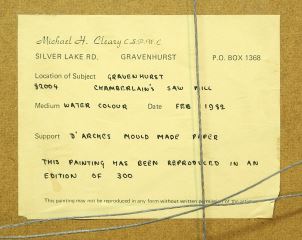 Michael H. Cleary C.S.P.W.C.
SILVER LAKE RD. GRAVENHURST P.O. BOX 1368
Location of Subject GRAVENHURST
82004 CHAMBERLAIN'S SAW MILL
Medium WATER COLOUR Date FEB 1982
Support D'ARCHES MOULD MADE PAPER
THIS PAINTING HAS BEEN REPRODUCED IN AN
EDITION OF 300
This painting may not be reproduced in any form without written permission of the artist